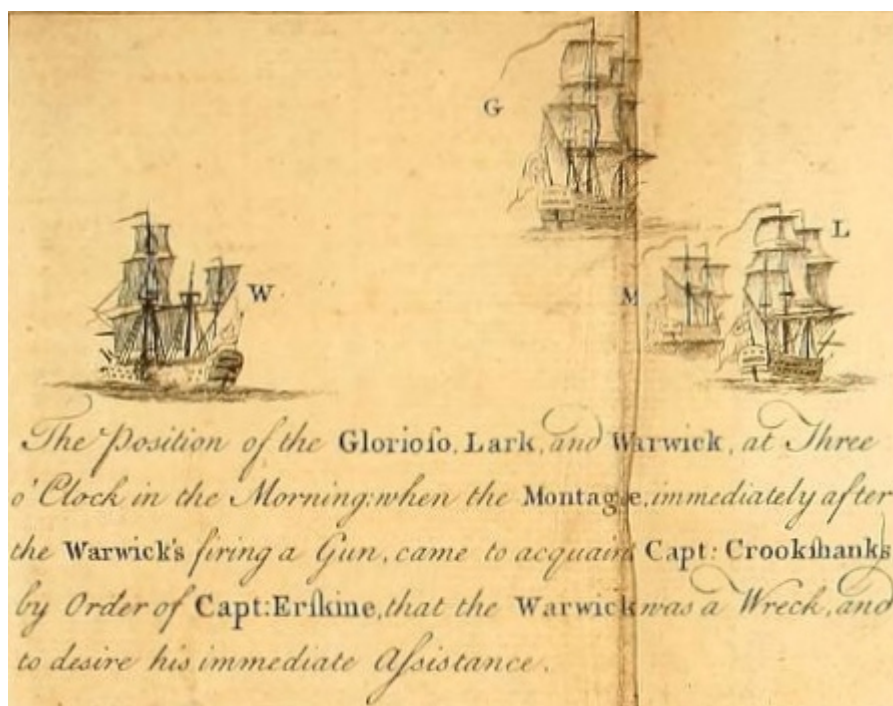 G
L
W
M
The Position of the Glorioſo, Lark, and Warwick, at Three
o'Clock in the Morning; when the Montague, immediately after
the Warwick's firing a Gun, came to acquaint Capt: Crookſhanks
by Order of Capt: Erſkine, that the Warwick was a Wreck, and
to desire his immediate Aſsistance.